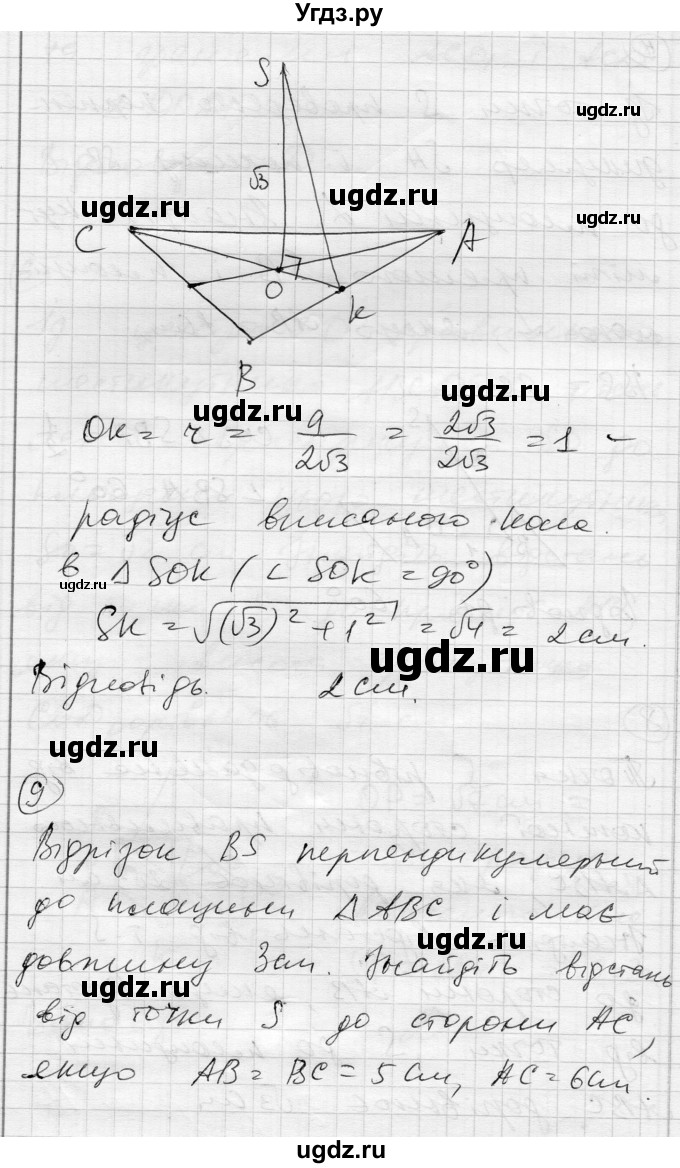 Угдз.ру
S
ugdz.ru
√3
ugdz.ru
ugdz.ru
ugdz.ru
C
A
O
K
B
ugdz.ru
ugdz.ru
OK = r = a/2√3 = 2√3/2√3 = 1 –
радіус вписаного кола.
В Δ SOK (∠ SOK = 90°)
ugdz.ru
SK = √((√3)² + 1²) = √4 = 2 см.
ugdz.ru
Відповідь. 2 см.
ugdz.ru
9
Відрізок BS перпендикулярний
до площини Δ ABC і має
ugdz.ru
довжину 3 см. Знайдіть відстань
ugdz.ru
від точки S до сторони AC,
якщо AB = BC = 5 см, AC = 6 см.
ugdz.ru